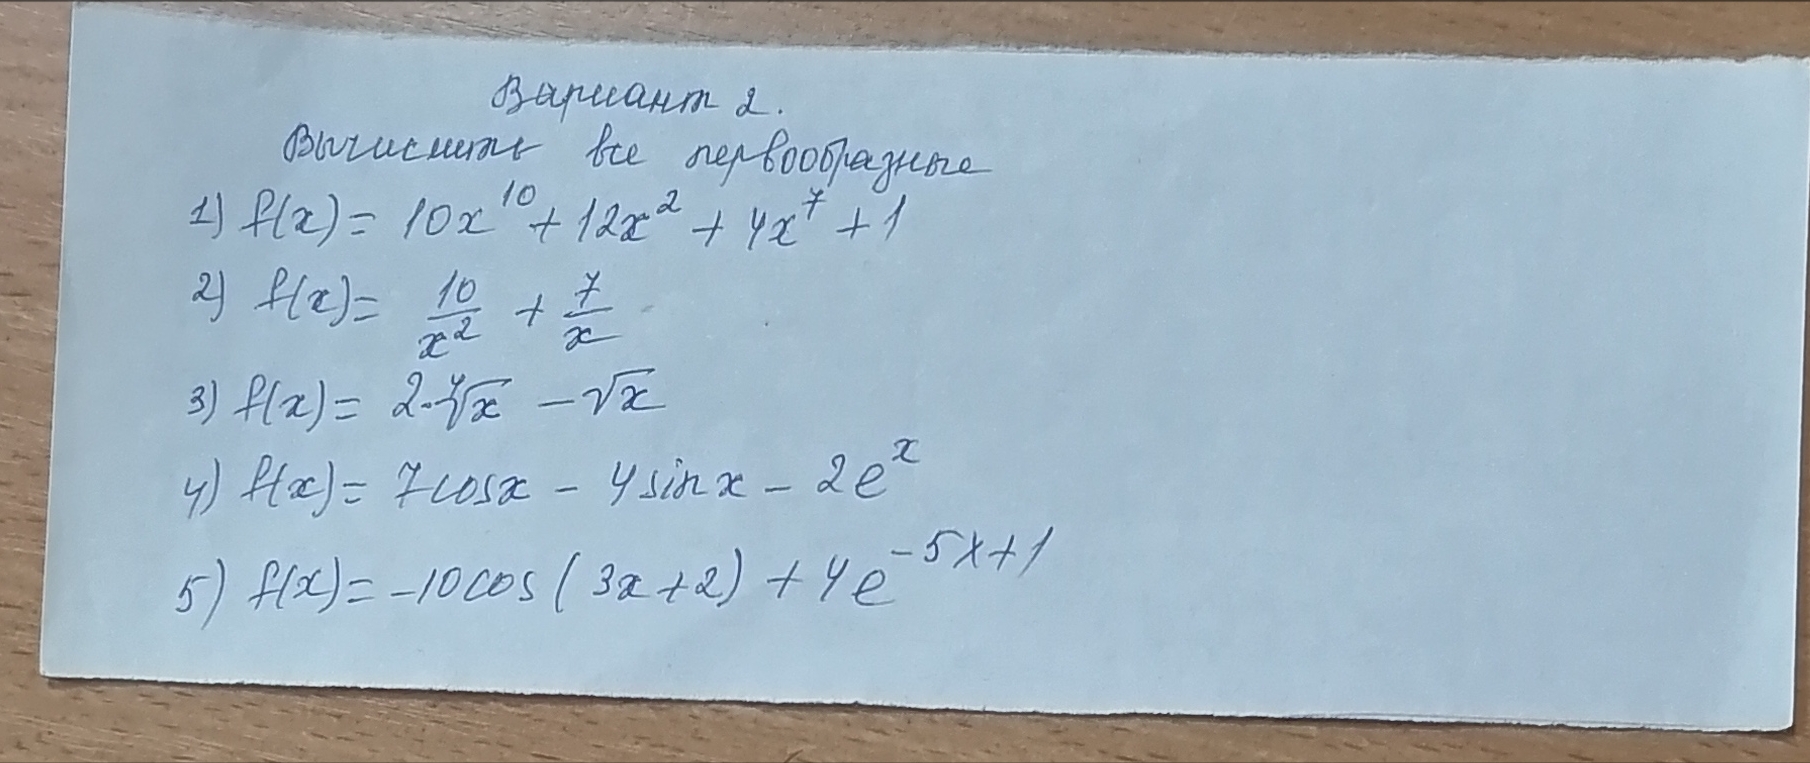 Вариант 2.
Вычислить все первообразные
1) f(x) = 10x^10 + 12x^2 + 4x^7 + 1
2) f(x) = 10/x^2 + 7/x
3) f(x) = 2·∜x − √x
4) f(x) = 7cosx − 4sinx − 2e^x
5) f(x) = −10cos(3x+2) + 4e^(−5x+1)